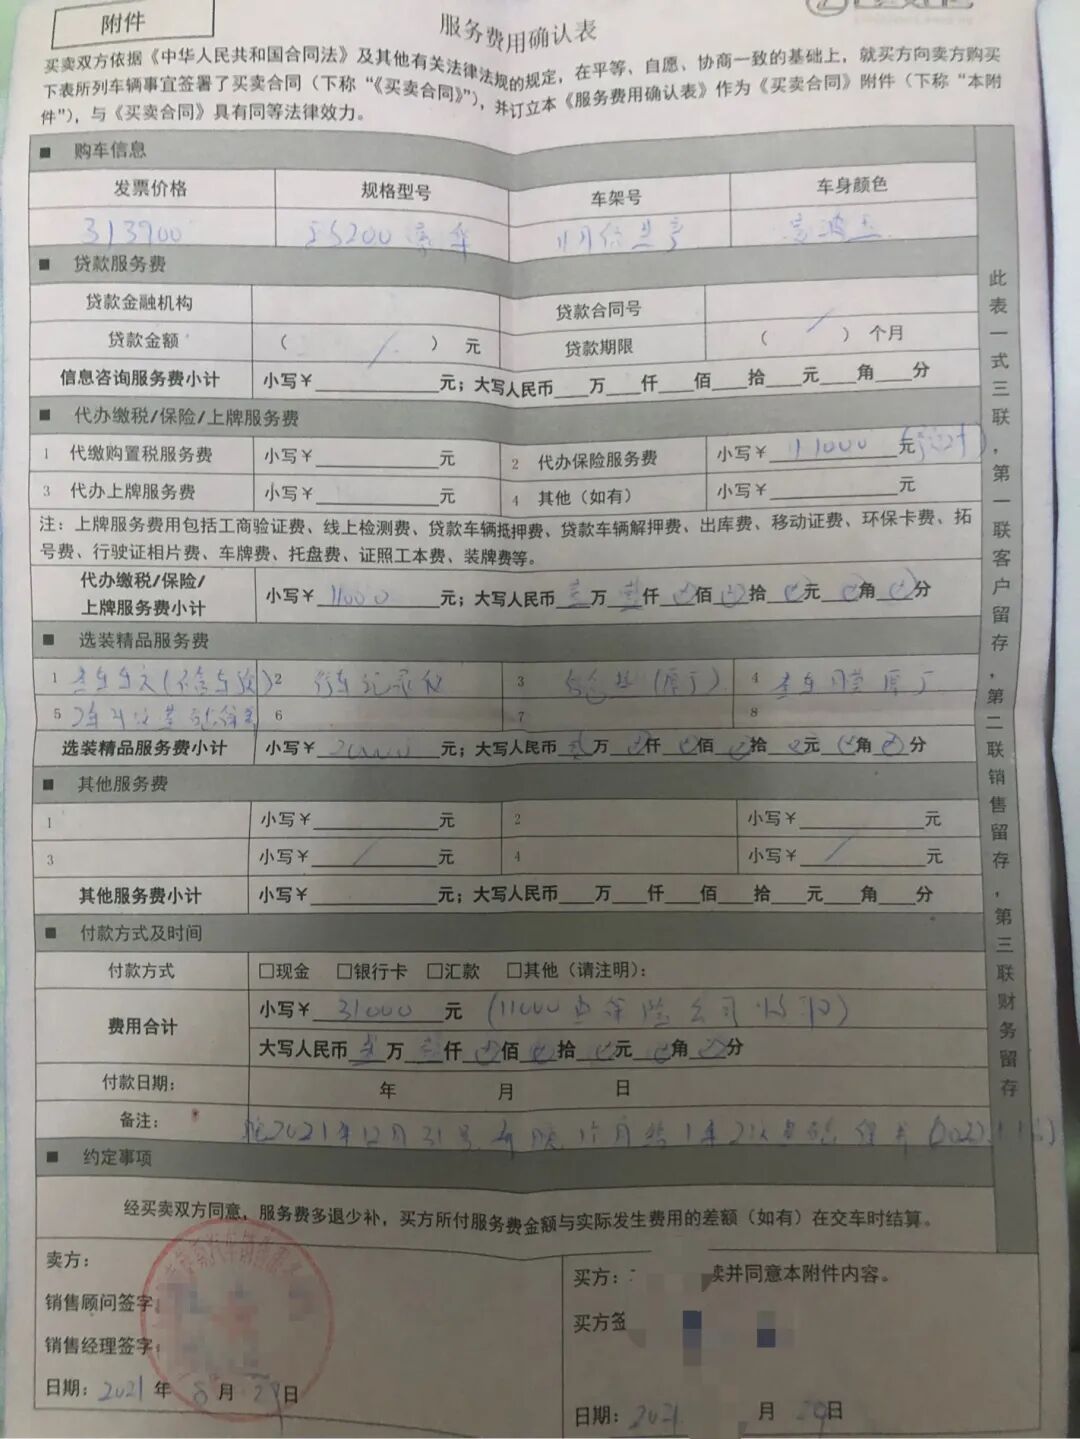 附件
服务费用确认表
买卖双方依据《中华人民共和国合同法》及其他有关法律法规的规定，在平等、自愿、协商一致的基础上，就买方向卖方购买
下表所列车辆事宜签署了买卖合同（下称“《买卖合同》”），并订立本《服务费用确认表》作为《买卖合同》附件（下称“本附
件”），与《买卖合同》具有同等法律效力。
■ 购车信息
发票价格 规格型号 车架号 车身颜色
313900 ES200
■ 贷款服务费
贷款金融机构 贷款合同号
贷款金额 （ ） 元 贷款期限 （ ） 个月
信息咨询服务费小计 小写￥ 元；大写人民币 万 仟 佰 拾 元 角 分
■ 代办缴税/保险/上牌服务费
1 代缴购置税服务费 小写￥ 元 2 代办保险服务费 小写￥ 11000 元
3 代办上牌服务费 小写￥ 元 4 其他（如有） 小写￥ 元
注：上牌服务费用包括工商验证费、线上检测费、贷款车辆抵押费、贷款车辆解押费、出库费、移动证费、环保卡费、拓
号费、行驶证相片费、车牌费、托盘费、证照工本费、装牌费等。
代办缴税/保险/
上牌服务费小计 小写￥ 11000 元；大写人民币 壹 万 壹 仟 佰 拾 元 角 分
■ 选装精品服务费
1 2 行车记录仪 3 (原厂) 4 原厂
5 6 7 8
选装精品服务费小计 小写￥ 20000 元；大写人民币 贰 万 仟 佰 拾 元 角 分
■ 其他服务费
1 小写￥ 元 2 小写￥ 元
3 小写￥ 元 4 小写￥ 元
其他服务费小计 小写￥ 元；大写人民币 万 仟 佰 拾 元 角 分
■ 付款方式及时间
付款方式 □现金 □银行卡 □汇款 □其他（请注明）：
费用合计 小写￥ 31000 元 (11000 保险公司收取)
大写人民币 叁 万 壹 仟 佰 拾 元 角 分
付款日期： 年 月 日
备注： 2021年12月31号
■ 约定事项
经买卖双方同意，服务费多退少补，买方所付服务费金额与实际发生费用的差额（如有）在交车时结算。
卖方：
销售顾问签字：
销售经理签字：
日期：2021 年 8 月 29 日
买方： 并同意本附件内容。
买方签
日期：2021 月 29 日
此表一式三联，第一联客户留存，第二联销售留存，第三联财务留存